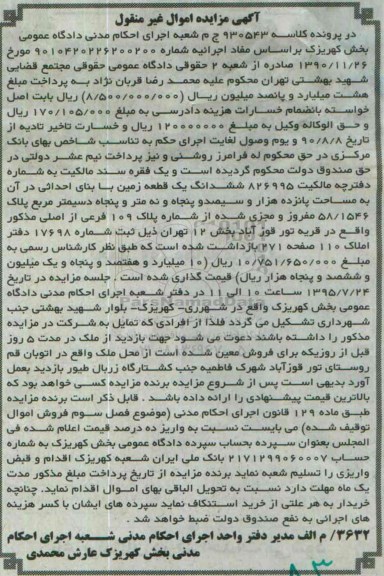 آگهی مزایده اموال غیر منقول
در پرونده کلاسه ۹۳۰۵۴۳ ج م شعبه اجرای احکام مدنی دادگاه عمومی
بخش کهریزک براساس مفاد اجرائیه شماره ۹۰۱۰۴۲۰۲۲۶۲۰۰۲۰۰ مورخ
۱۳۹۰/۱۱/۲۶ صادره از شعبه ۲ حقوقی دادگاه عمومی حقوقی مجتمع قضایی
شهید بهشتی تهران محکوم علیه محمد رضا قربان نژاد به پرداخت مبلغ
هشت میلیارد و پانصد میلیون ریال (۸/۵۰۰/۰۰۰/۰۰۰) ریال بابت اصل
خواسته بانضمام خسارات هزینه دادرسی به مبلغ ۱۷۰/۱۰۵/۰۰۰ ریال
و حق الوکاله وکیل به مبلغ ۱۲۰۰۰۰۰۰۰ ریال و خسارت تاخیر تادیه از
تاریخ ۹۰/۸/۸ و یوم وصول لغایت اجرای حکم به تناسب شاخص بهای بانک
مرکزی در حق محکوم له فرامرز روشنی و نیز پرداخت نیم عشر دولتی در
حق صندوق دولت محکوم گردیده است و یک فقره سند مالکیت به شماره
دفترچه مالکیت ۸۲۶۹۹۵ ششدانگ یک قطعه زمین با بنای احداثی در آن
به مساحت پانزده هزار و سیصدو پنجاه و نه متر و پنجاه دسیمتر مربع پلاک
۵۸/۱۵۴۶ مفروز و مجزی شده از شماره پلاک ۱۰۹ فرعی از اصلی مذکور
واقع در قریه تور قوز آباد بخش ۱۲ تهران ذیل ثبت شماره ۱۷۶۹۸ دفتر
املاک ۱۱۰ صفحه ۲۷۱ بازداشت شده است که طبق نظر کارشناس رسمی به
مبلغ ۱۰/۷۵۱/۶۵۰/۰۰۰ ریال (۱۰ میلیارد و هفتصد و پنجاه و یک میلیون
و ششصد و پنجاه هزار ریال) قیمت گذاری شده است . جلسه مزایده در تاریخ
۱۳۹۵/۷/۲۴ ساعت ۱۰ الی ۱۱ در دفتر شعبه اجرای احکام مدنی دادگاه
عمومی بخش کهریزک واقع در شهرری- کهریزک- بلوار شهید بهشتی جنب
شهرداری تشکیل می گردد فلذا از افرادی که تمایل به شرکت در مزایده
مذکور را داشته باشند دعوت می شود جهت بازدید از ملک در مدت ۵ روز
قبل از روزیکه برای فروش معین شده است از محل ملک واقع در اتوبان قم
روستای تور قوزآباد شهرک فاطمیه جنب کشتارگاه زربال طیور بازدید بعمل
آورد بدیهی است پس از شروع مزایده برنده مزایده کسی خواهد بود که
بالاترین قیمت پیشنهادی را ارائه داده باشد . قابل ذکر است برنده مزایده
طبق ماده ۱۲۹ قانون اجرای احکام مدنی (موضوع فصل سوم فروش اموال
توقیف شده) می بایست نسبت به واریز ده درصد قیمت اعلام شده فی
المجلس بعنوان سپرده بحساب سپرده دادگاه عمومی بخش کهریزک به شماره
حساب ۲۱۷۱۲۹۹۰۶۰۰۷ بانک ملی ایران شعبه کهریزک اقدام و قبض
واریزی را تسلیم شعبه نماید برنده مزایده از تاریخ پرداخت مبلغ مذکور مدت
یک ماه مهلت دارد نسبت به تحویل الباقی بهای اموال اقدام نماید. چنانچه
خریدار به هر علتی از خرید استنکاف نماید سپرده های ایشان با کسر هزینه
های اجرائی به نفع صندوق دولت ضبط خواهد شد .
۳۶۳۲/ م الف مدیر دفتر واحد اجرای احکام مدنی شعبه اجرای احکام
مدنی بخش کهریزک عارش محمدی